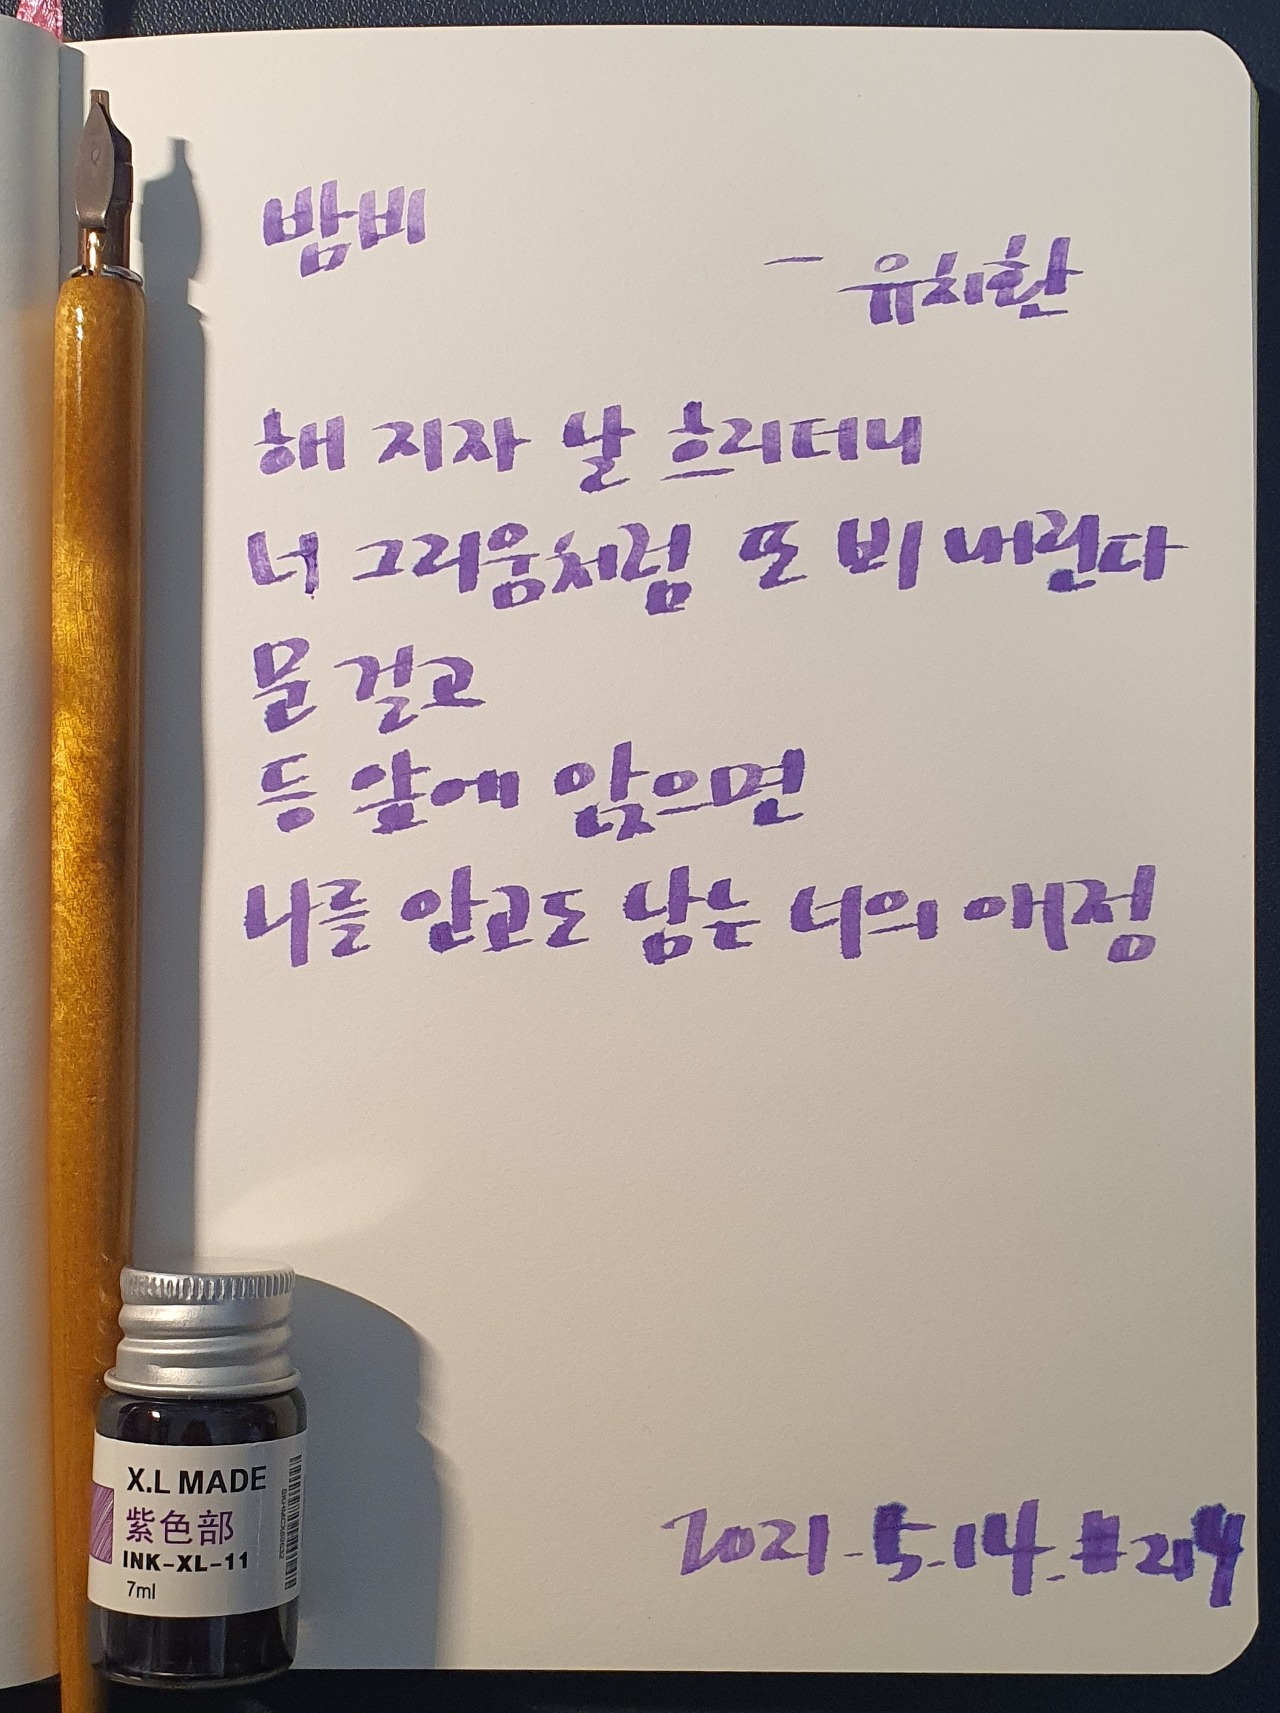 밤비
- 유치환
해 지자 날 흐리더니
너 그리움처럼 또 비 내린다
문 걸고
등 앞에 앉으면
나를 안고도 남는 너의 애정
X.L MADE
紫色部
INK-XL-11
7ml
2021.5.14. #214